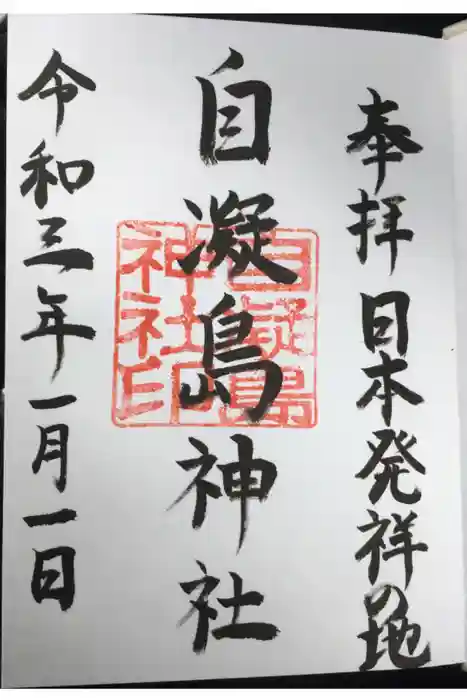 奉拝 日本発祥の地
自凝島神社
自凝島
神社印
令和三年一月一日